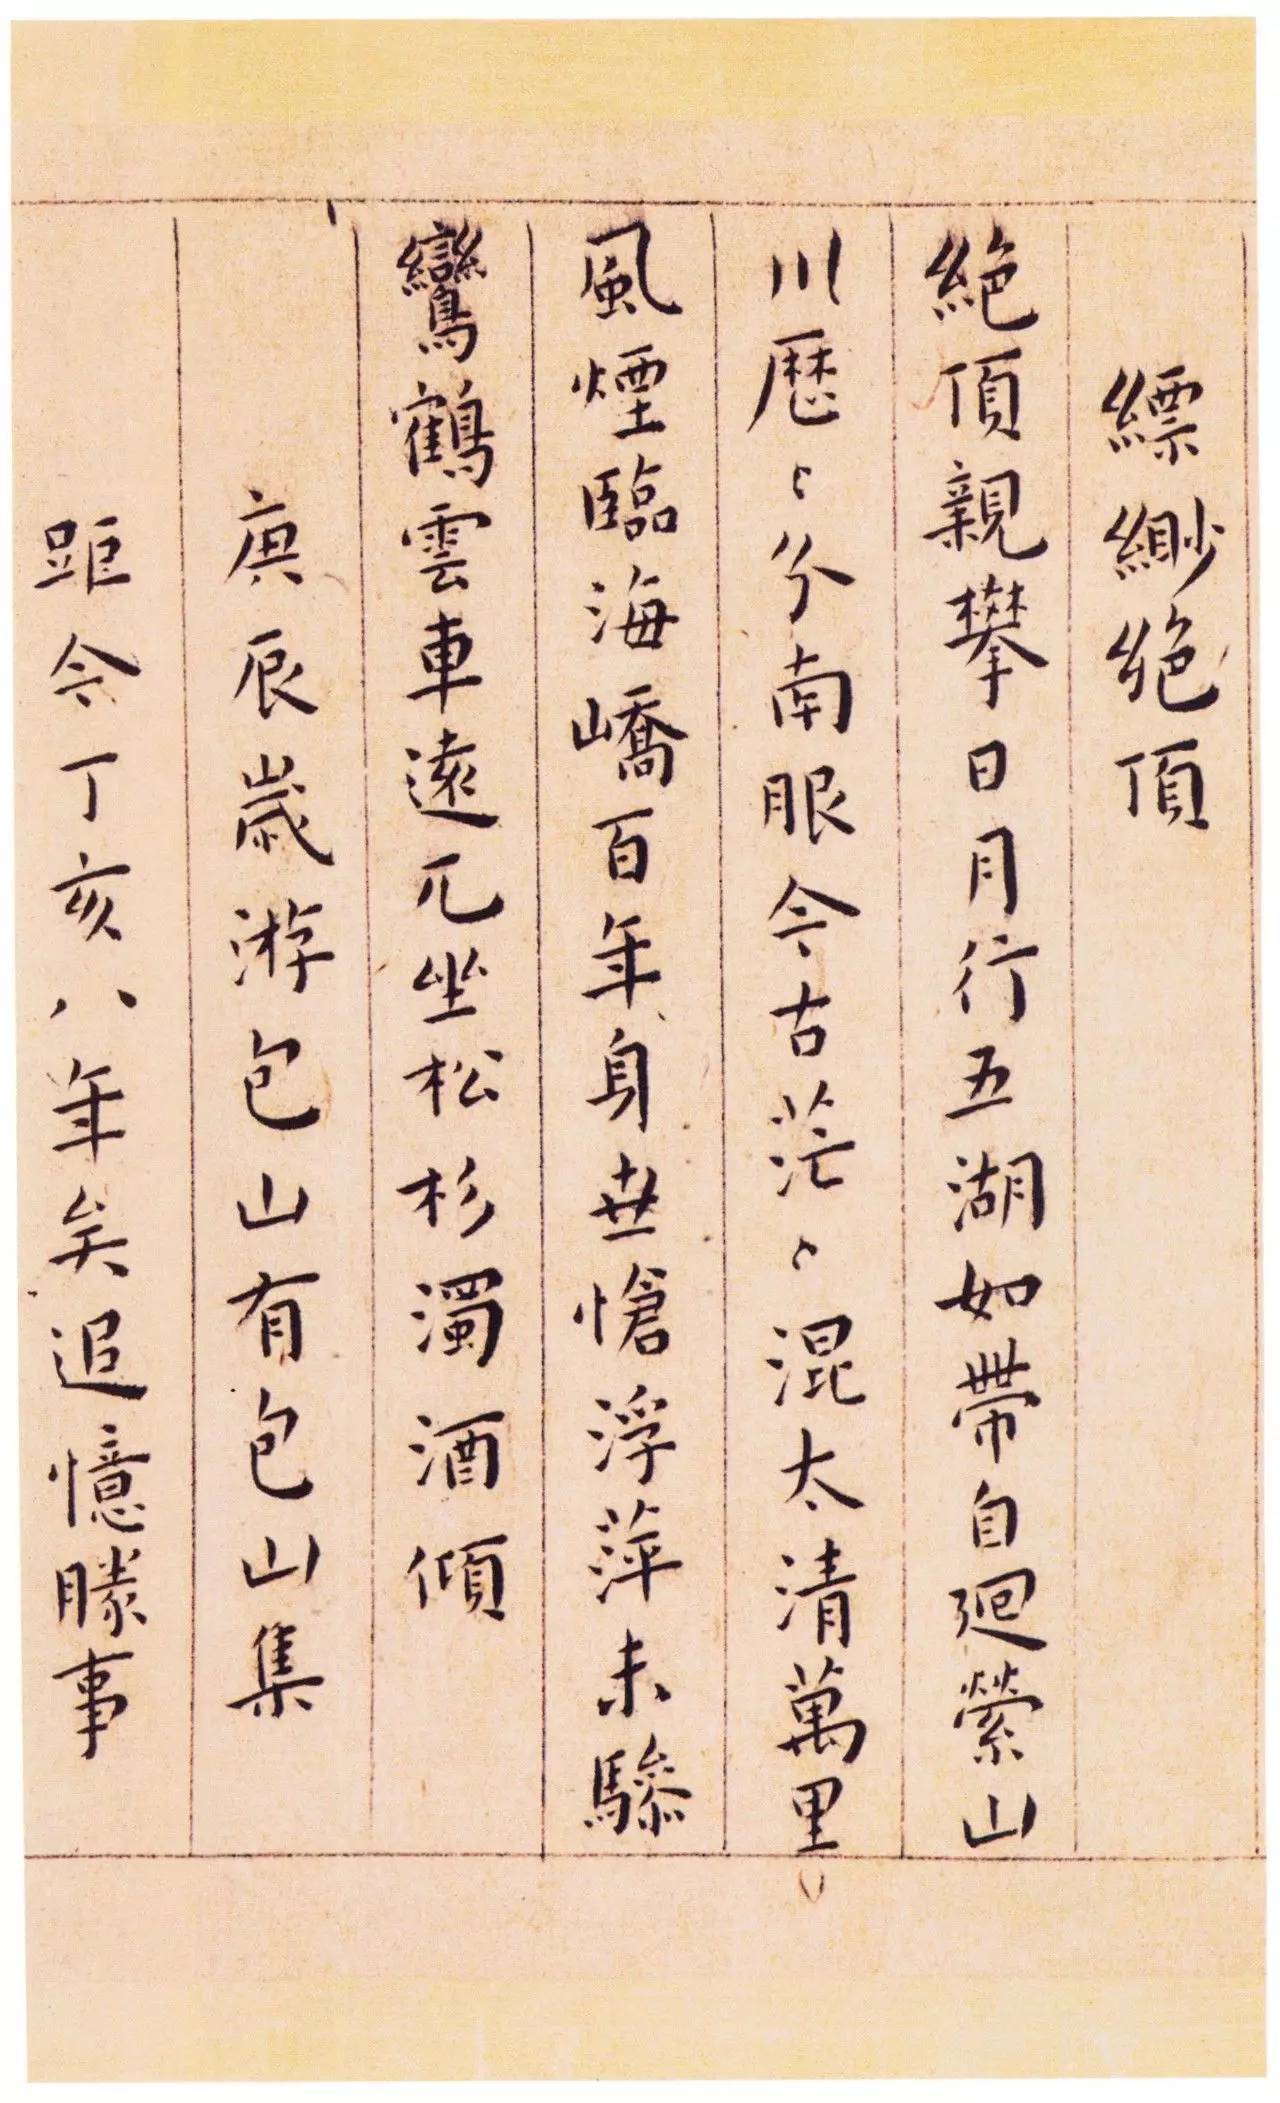 縹緲絶頂
絶頂親攀日月行五湖如帶自迴縈山
川歴〻分南眼今古茫〻混太清萬里
風煙臨海嶠百年身世愴浮萍未驂
鸞鶴雲車遠兀坐松杉濁酒傾
庚辰歲游包山有包山集
距今丁亥八年矣追憶勝事